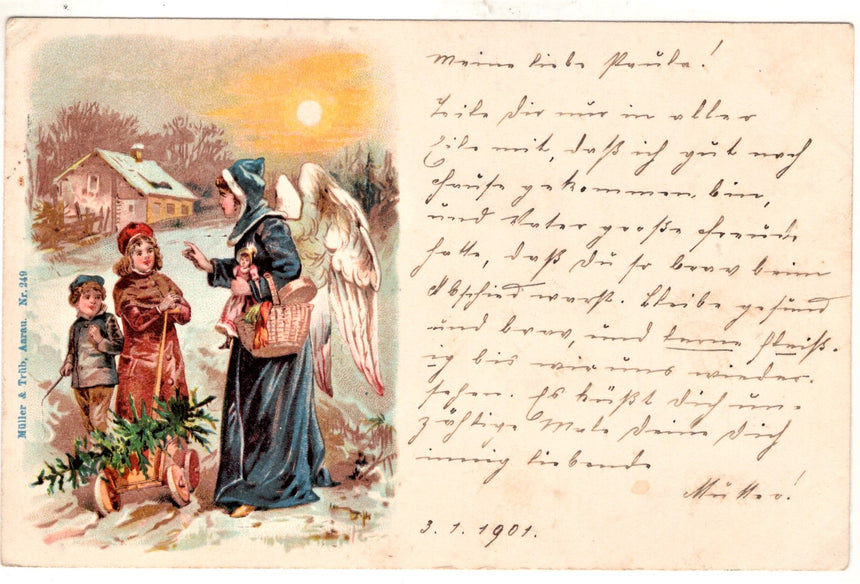 Müller & Trüb, Aarau. Nr. 249
Meine liebe Paula!
Teile Dir nur in aller
Eile mit, daß ich gut nach
Hause gekommen bin,
und Vater große Freude
hatte, daß Du so brav beim
Abschied warst. Bleibe gesund
und brav, und lerne fleiß-
ig bis wir uns wieder-
sehen. Es küßt Dich un-
zählige Male Deine Dich
innig liebende
Mutter!
3.1.1901.